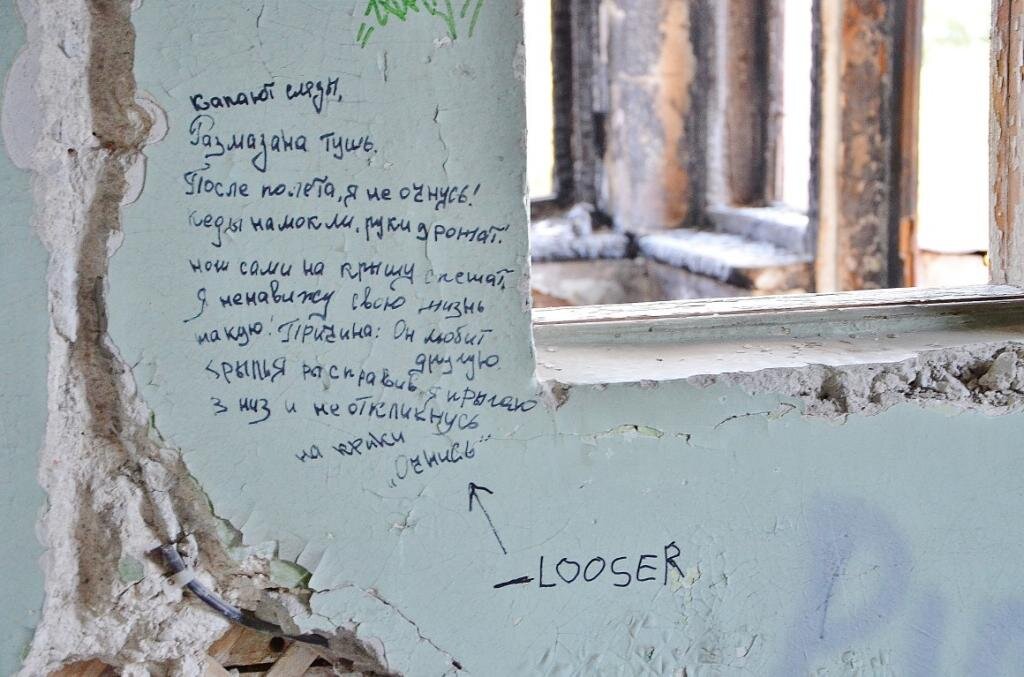 капают следы,
Размазана тушь.
После полёта, я не очнусь!
кеды намокли, руки дрожат!
ноги сами на крышу спешат,
Я ненавижу свою жизнь
такую! Причина: Он любит
другую
крылья расправив я прыгаю
в низ и не откликнусь
на крики
„Очнись“
LOOSER